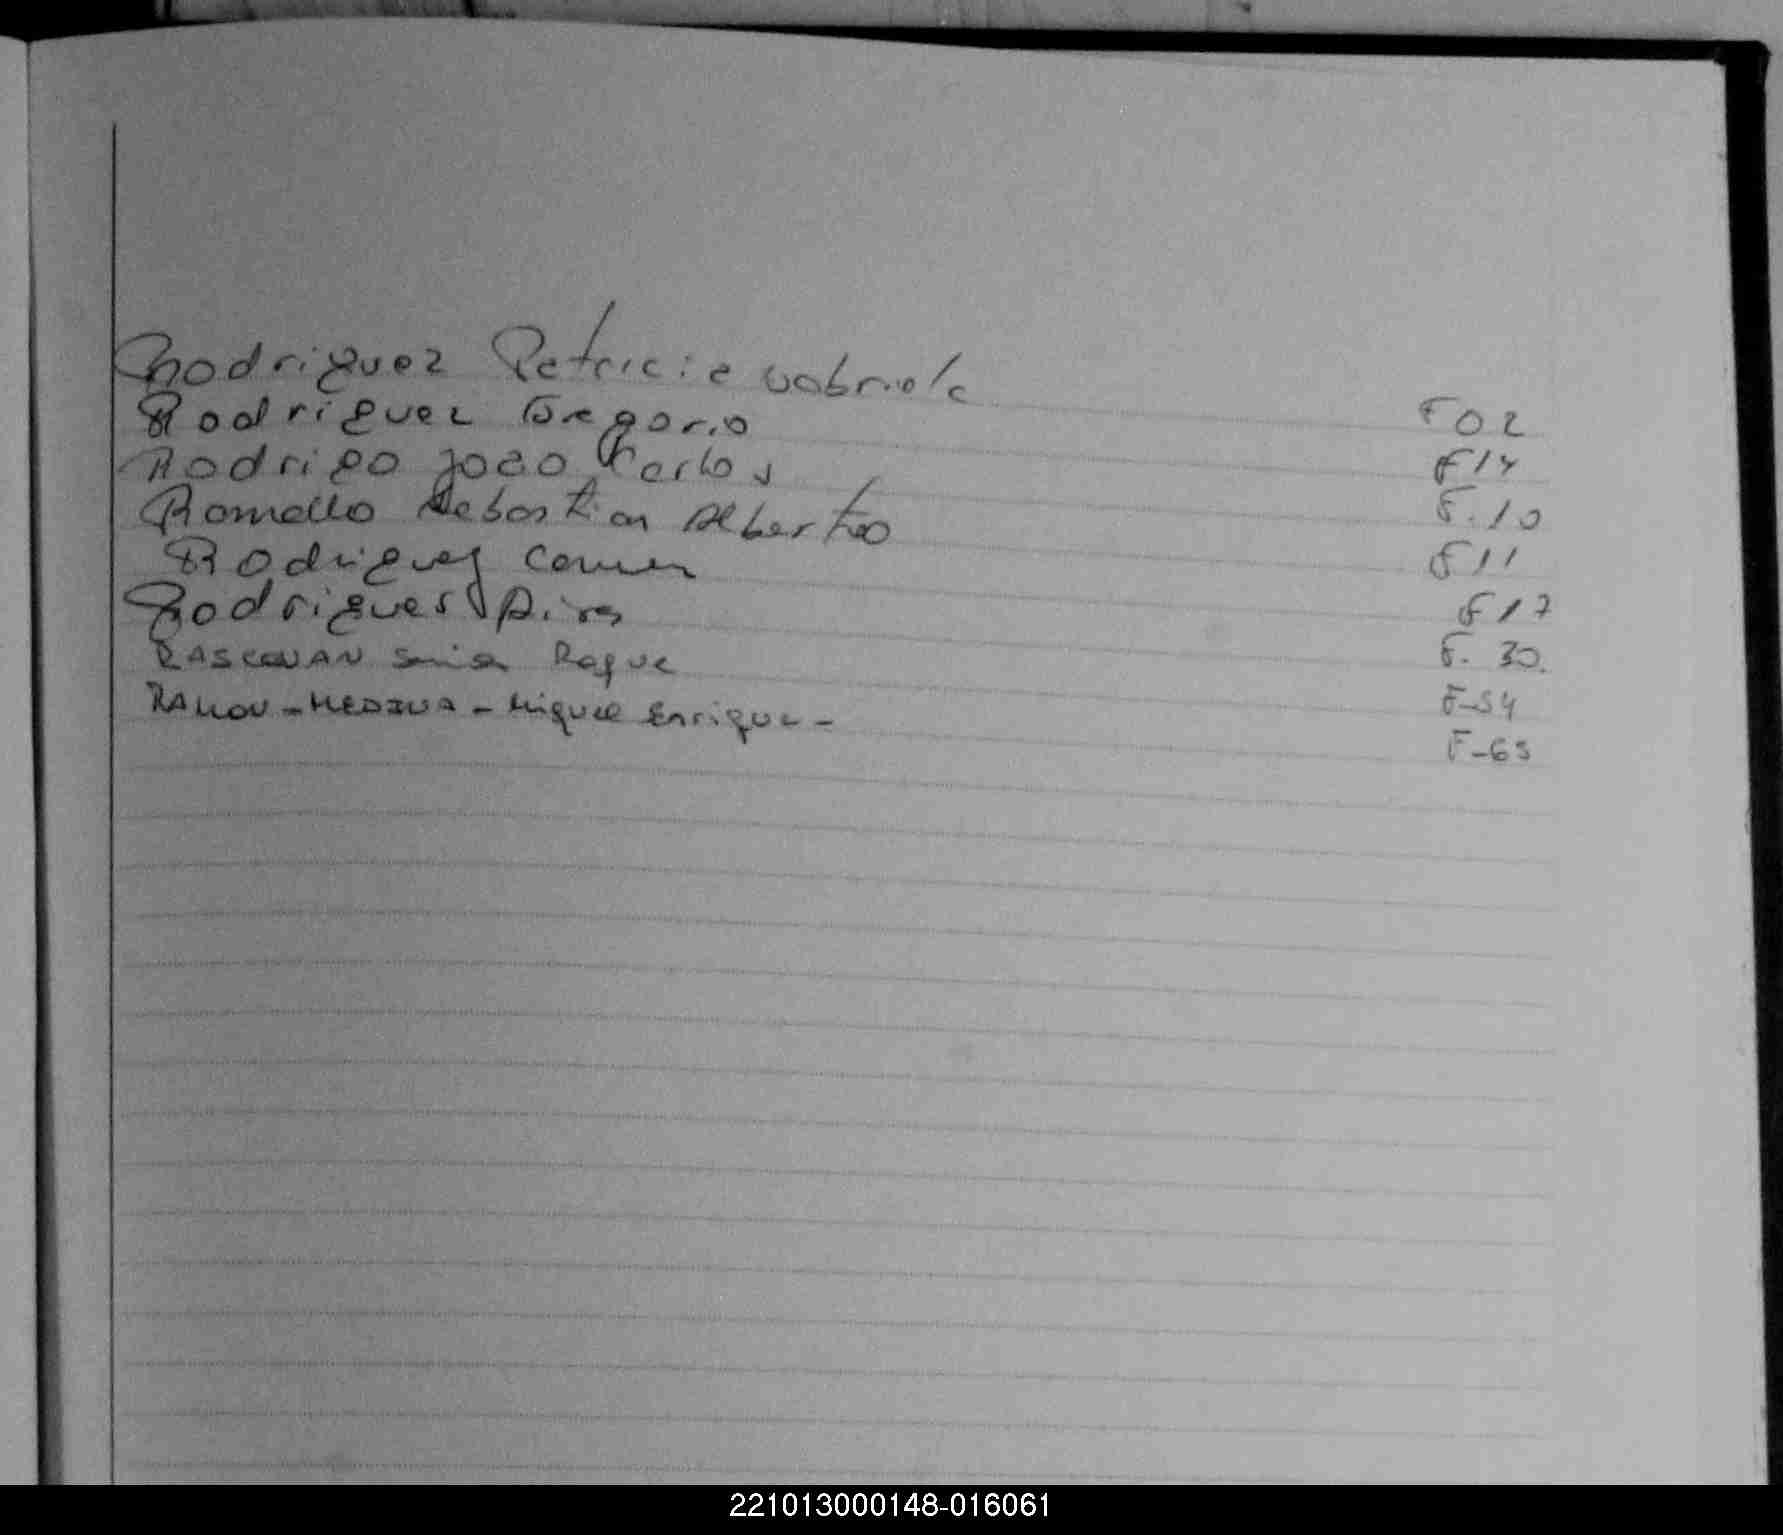 Rodriguez Patricia Gabriela F02
Rodriguez Gregorio F14
Rodrigo Joao Carlos F.10
Romello Sebastian Alberto F11
Rodriguez F17
Rodrigues Aires F. 30.
RASCOVAN Roque F-54
RAMON-MEDINA-Miguel Enrique- F-65
221013000148-016061